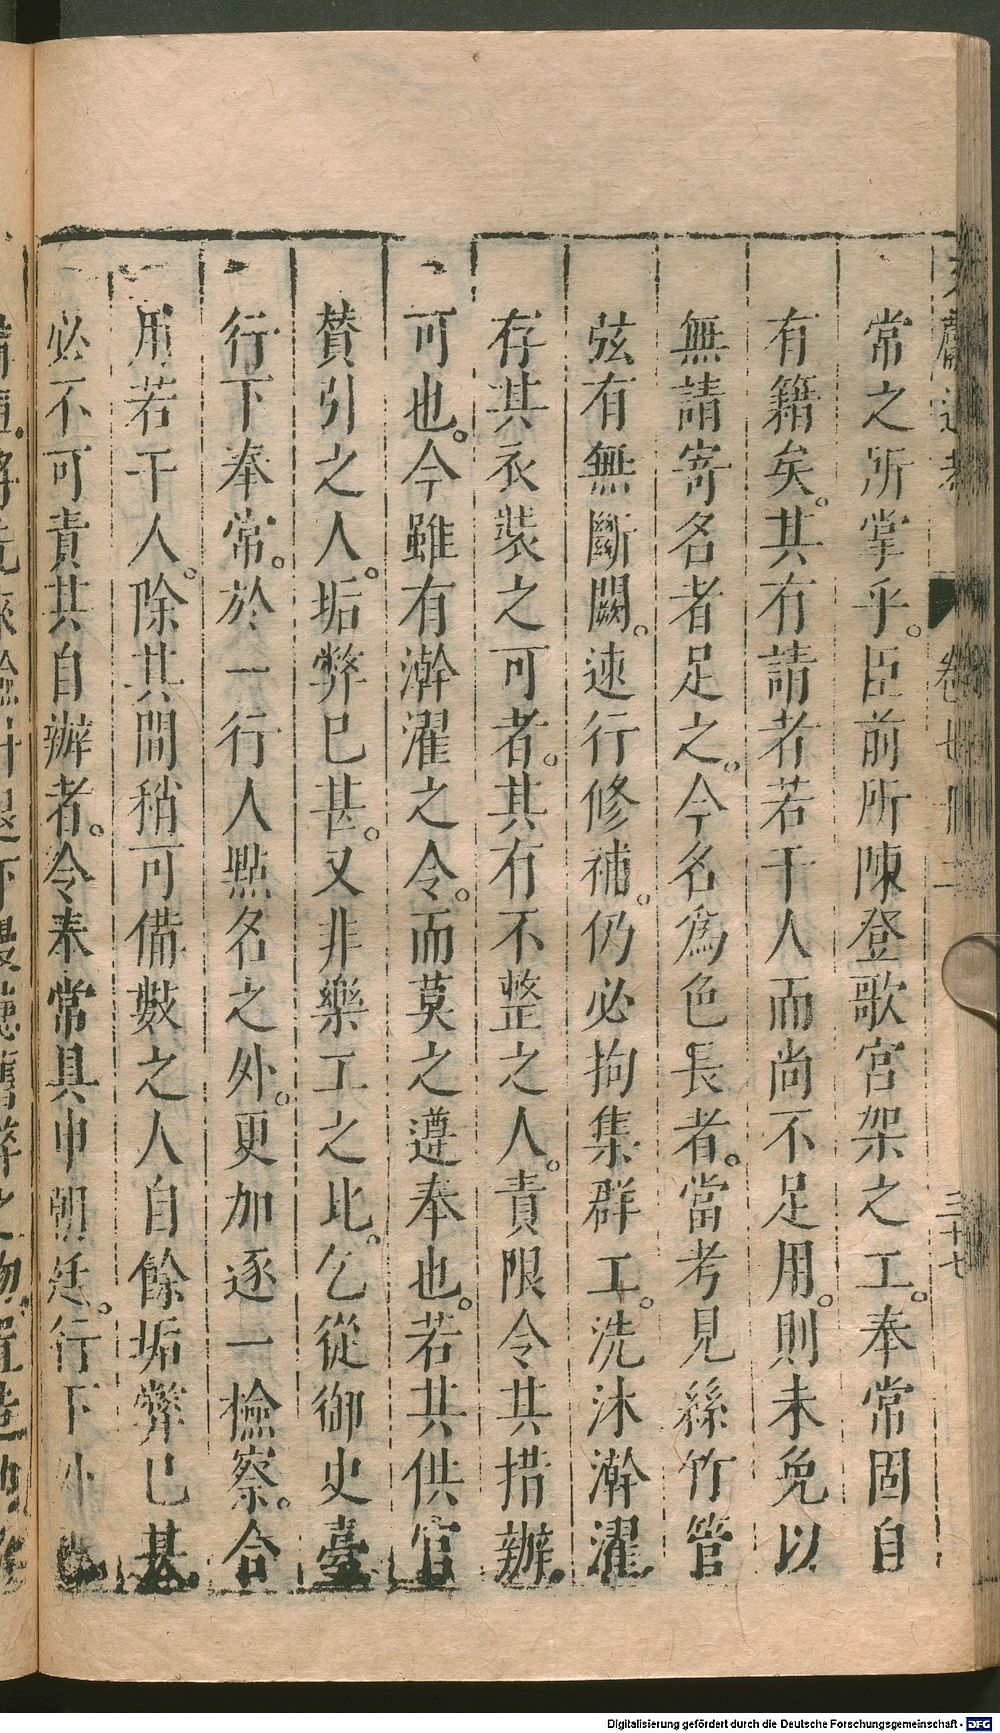 常之所掌乎。臣前所陳登歌宮架之工。奉常固自
有籍矣。其有請者若干人而尚不足用。則未免以
無請寄名者足之。今名爲色長者。當考見絲竹管
弦有無斷闕。速行修補。仍必拘集群工。洗沐澣濯
存其衣裝之可者。其有不整之人。責限令其措辦
可也。今雖有澣濯之令。而莫之遵奉也。若其供官
賛引之人。垢弊已甚。又非樂工之比。乞從御史臺
行下奉常。於一行人點名之外。更加逐一撿察。合
用若干人。除其間稍可備數之人自餘垢弊已甚
必不可責其自辦者。令奉常具申朝廷。行下外
卷
三十七
Digitalisierung gefördert durch die Deutsche Forschungsgemeinschaft - DFG